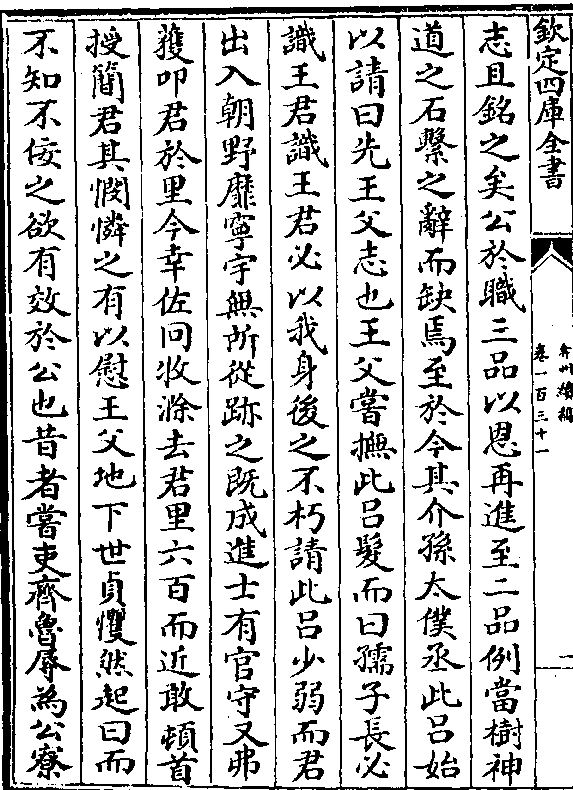 欽定四庫全書
弇州續稿
卷一百三十一
一
志且銘之矣公於職三品以恩再進至二品例當樹神
道之石繫之辭而缺焉至於今其介孫太僕丞此呂始
以請曰先王父志也王父嘗撫此呂髮而曰孺子長必
識王君識王君必以我身後之不朽請此呂少弱而君
出入朝野靡寧宇無所從跡之既成進士有官守又弗
獲叩君於里今幸佐冏牧滁去君里六百而近敢頓首
授簡君其憫憐之有以慰王父地下世貞懼然起曰而
不知不佞之欲有效於公也昔者嘗吏齊魯辱為公寮